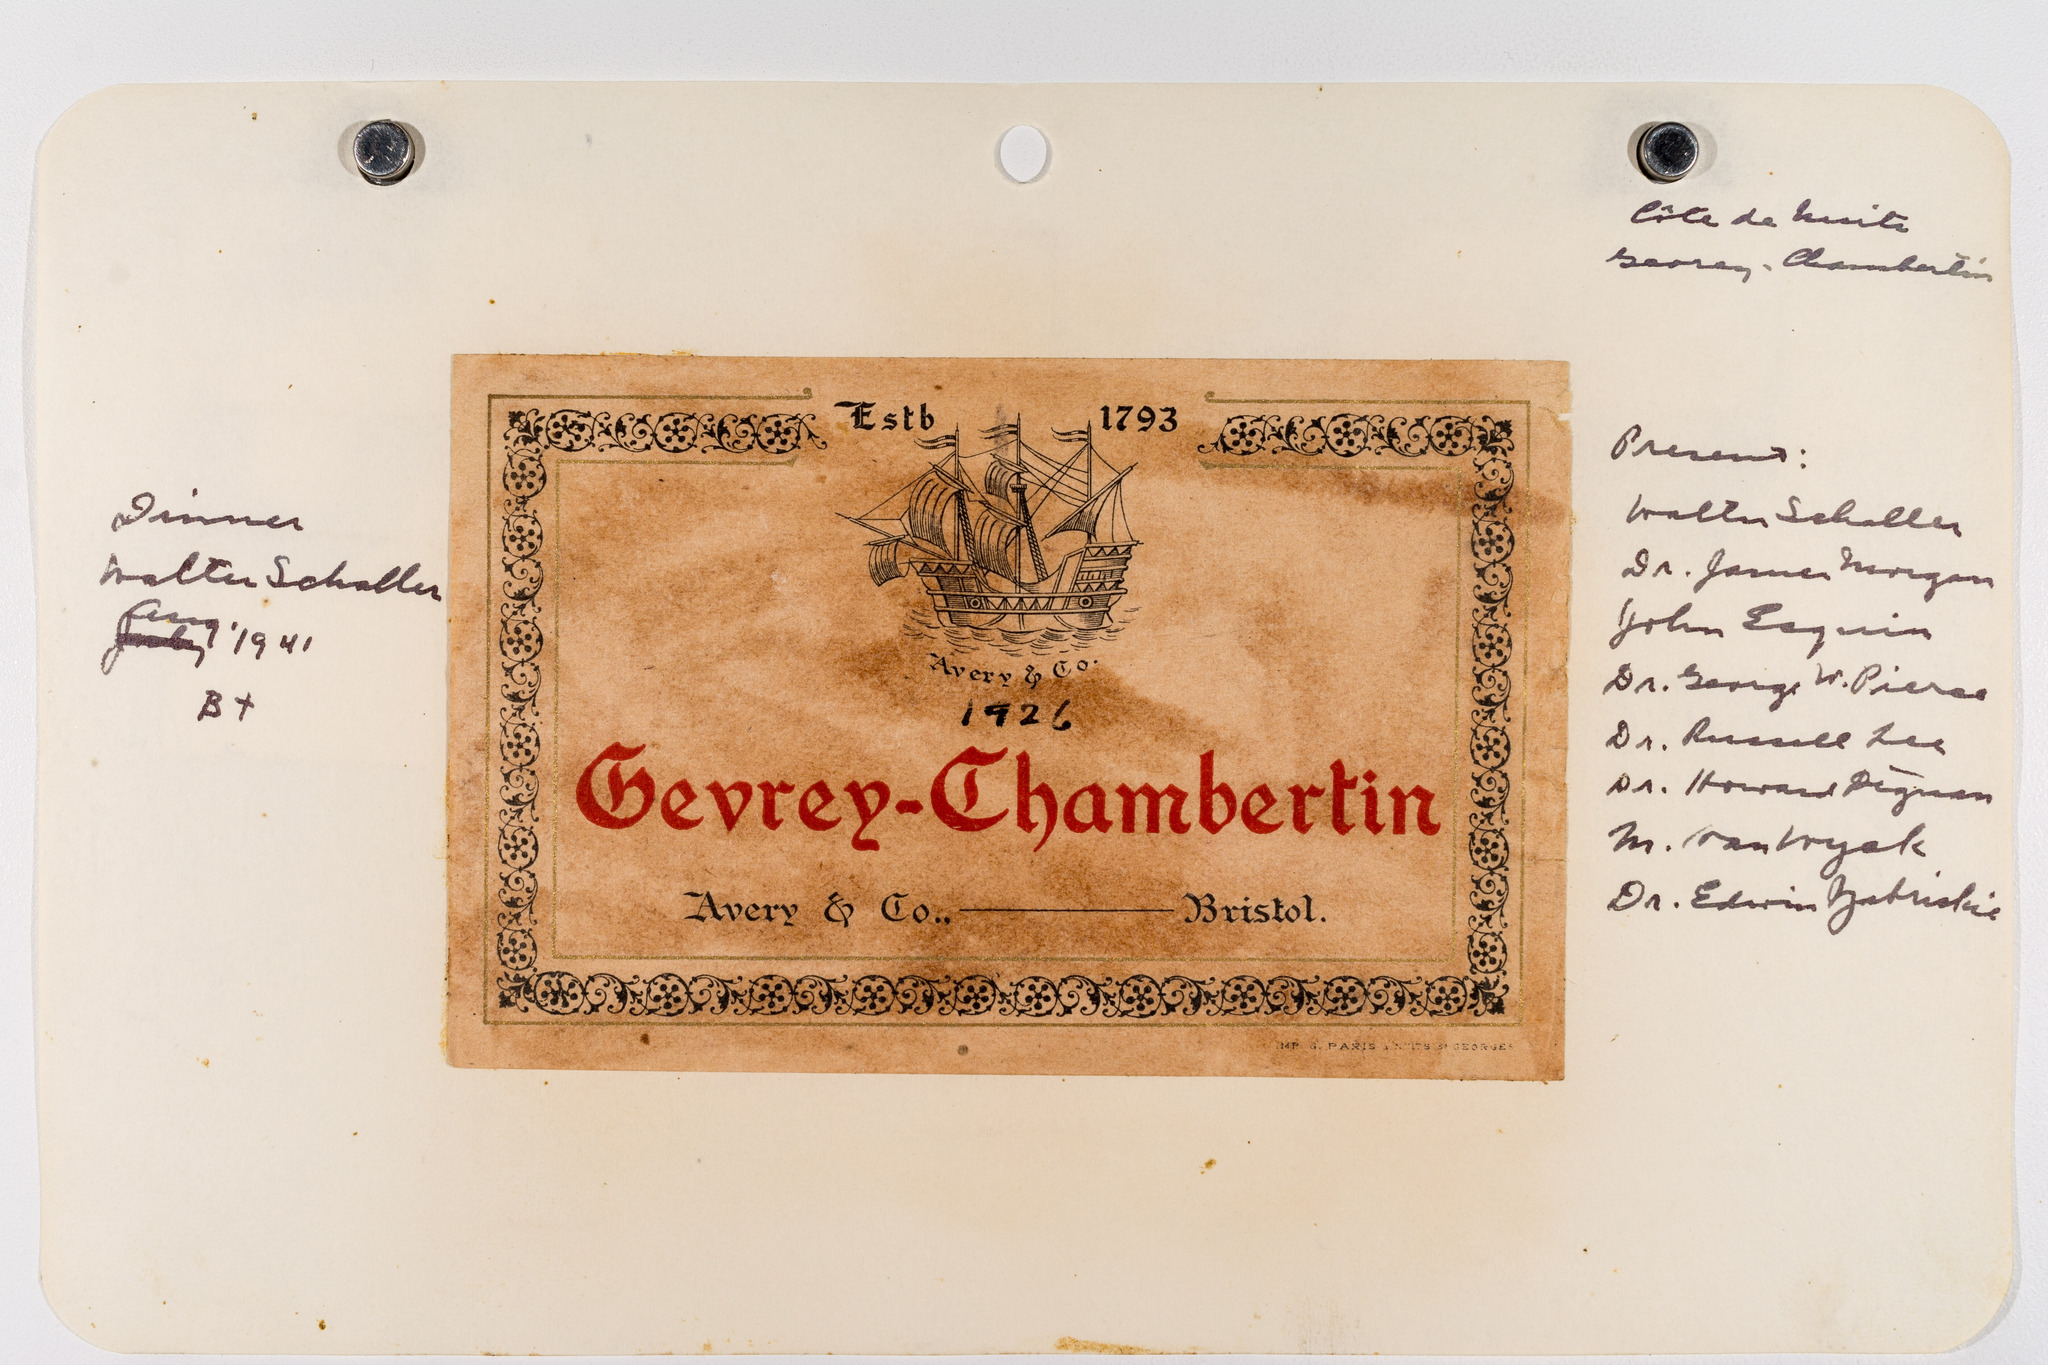 Côte de Nuits
Gevrey-Chambertin
Dinner
Walter Schaller
Aug.
July 1941
B+
Estb 1793
Avery & Co.
1926
Gevrey-Chambertin
Avery & Co., Bristol.
IMP. G. PARIS NUITS St GEORGES
Present:
Walter Schaller
Dr. James Morgan
John Esquin
Dr. George W. Pierce
Dr. Russell Lee
Dr. Howard
M. Van Wyck
Dr. Edwin Zabriskie